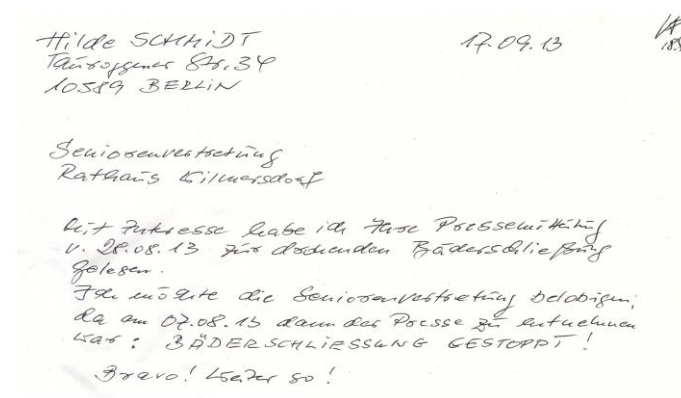 Hilde SCHMIDT 17.09.13
Tauroggener Str. 34
10589 BERLIN
Seniorenvertretung
Rathaus Wilmersdorf
Mit Interesse habe ich Ihre Pressemitteilung
v. 28.08.13 zur drohenden Bäderschließung
gelesen.
Ich möchte die Seniorenvertretung belobigen,
da am 07.08.13 dann der Presse zu entnehmen
war: BÄDERSCHLIESSUNG GESTOPPT!
Bravo! Weiter so!